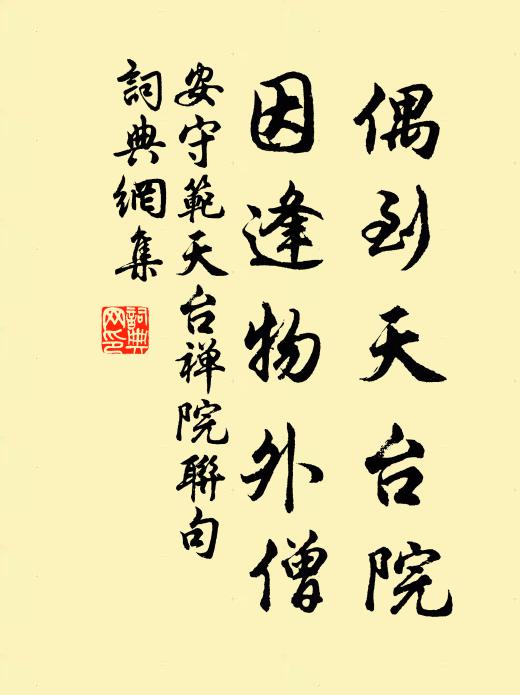 偶到天台院
因逢物外僧
安守範天台禅院聯句
詞典網集
詞典网印